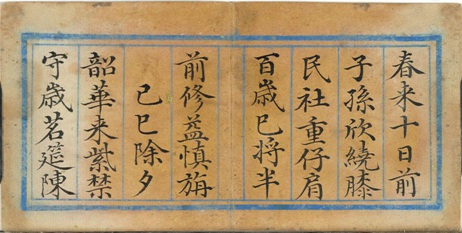 春来十日前
子孫欣繞膝
民社重仔肩
百歳已将半
前修益慎旃
己巳除夕
韶華来紫禁
守歳茗筵陳